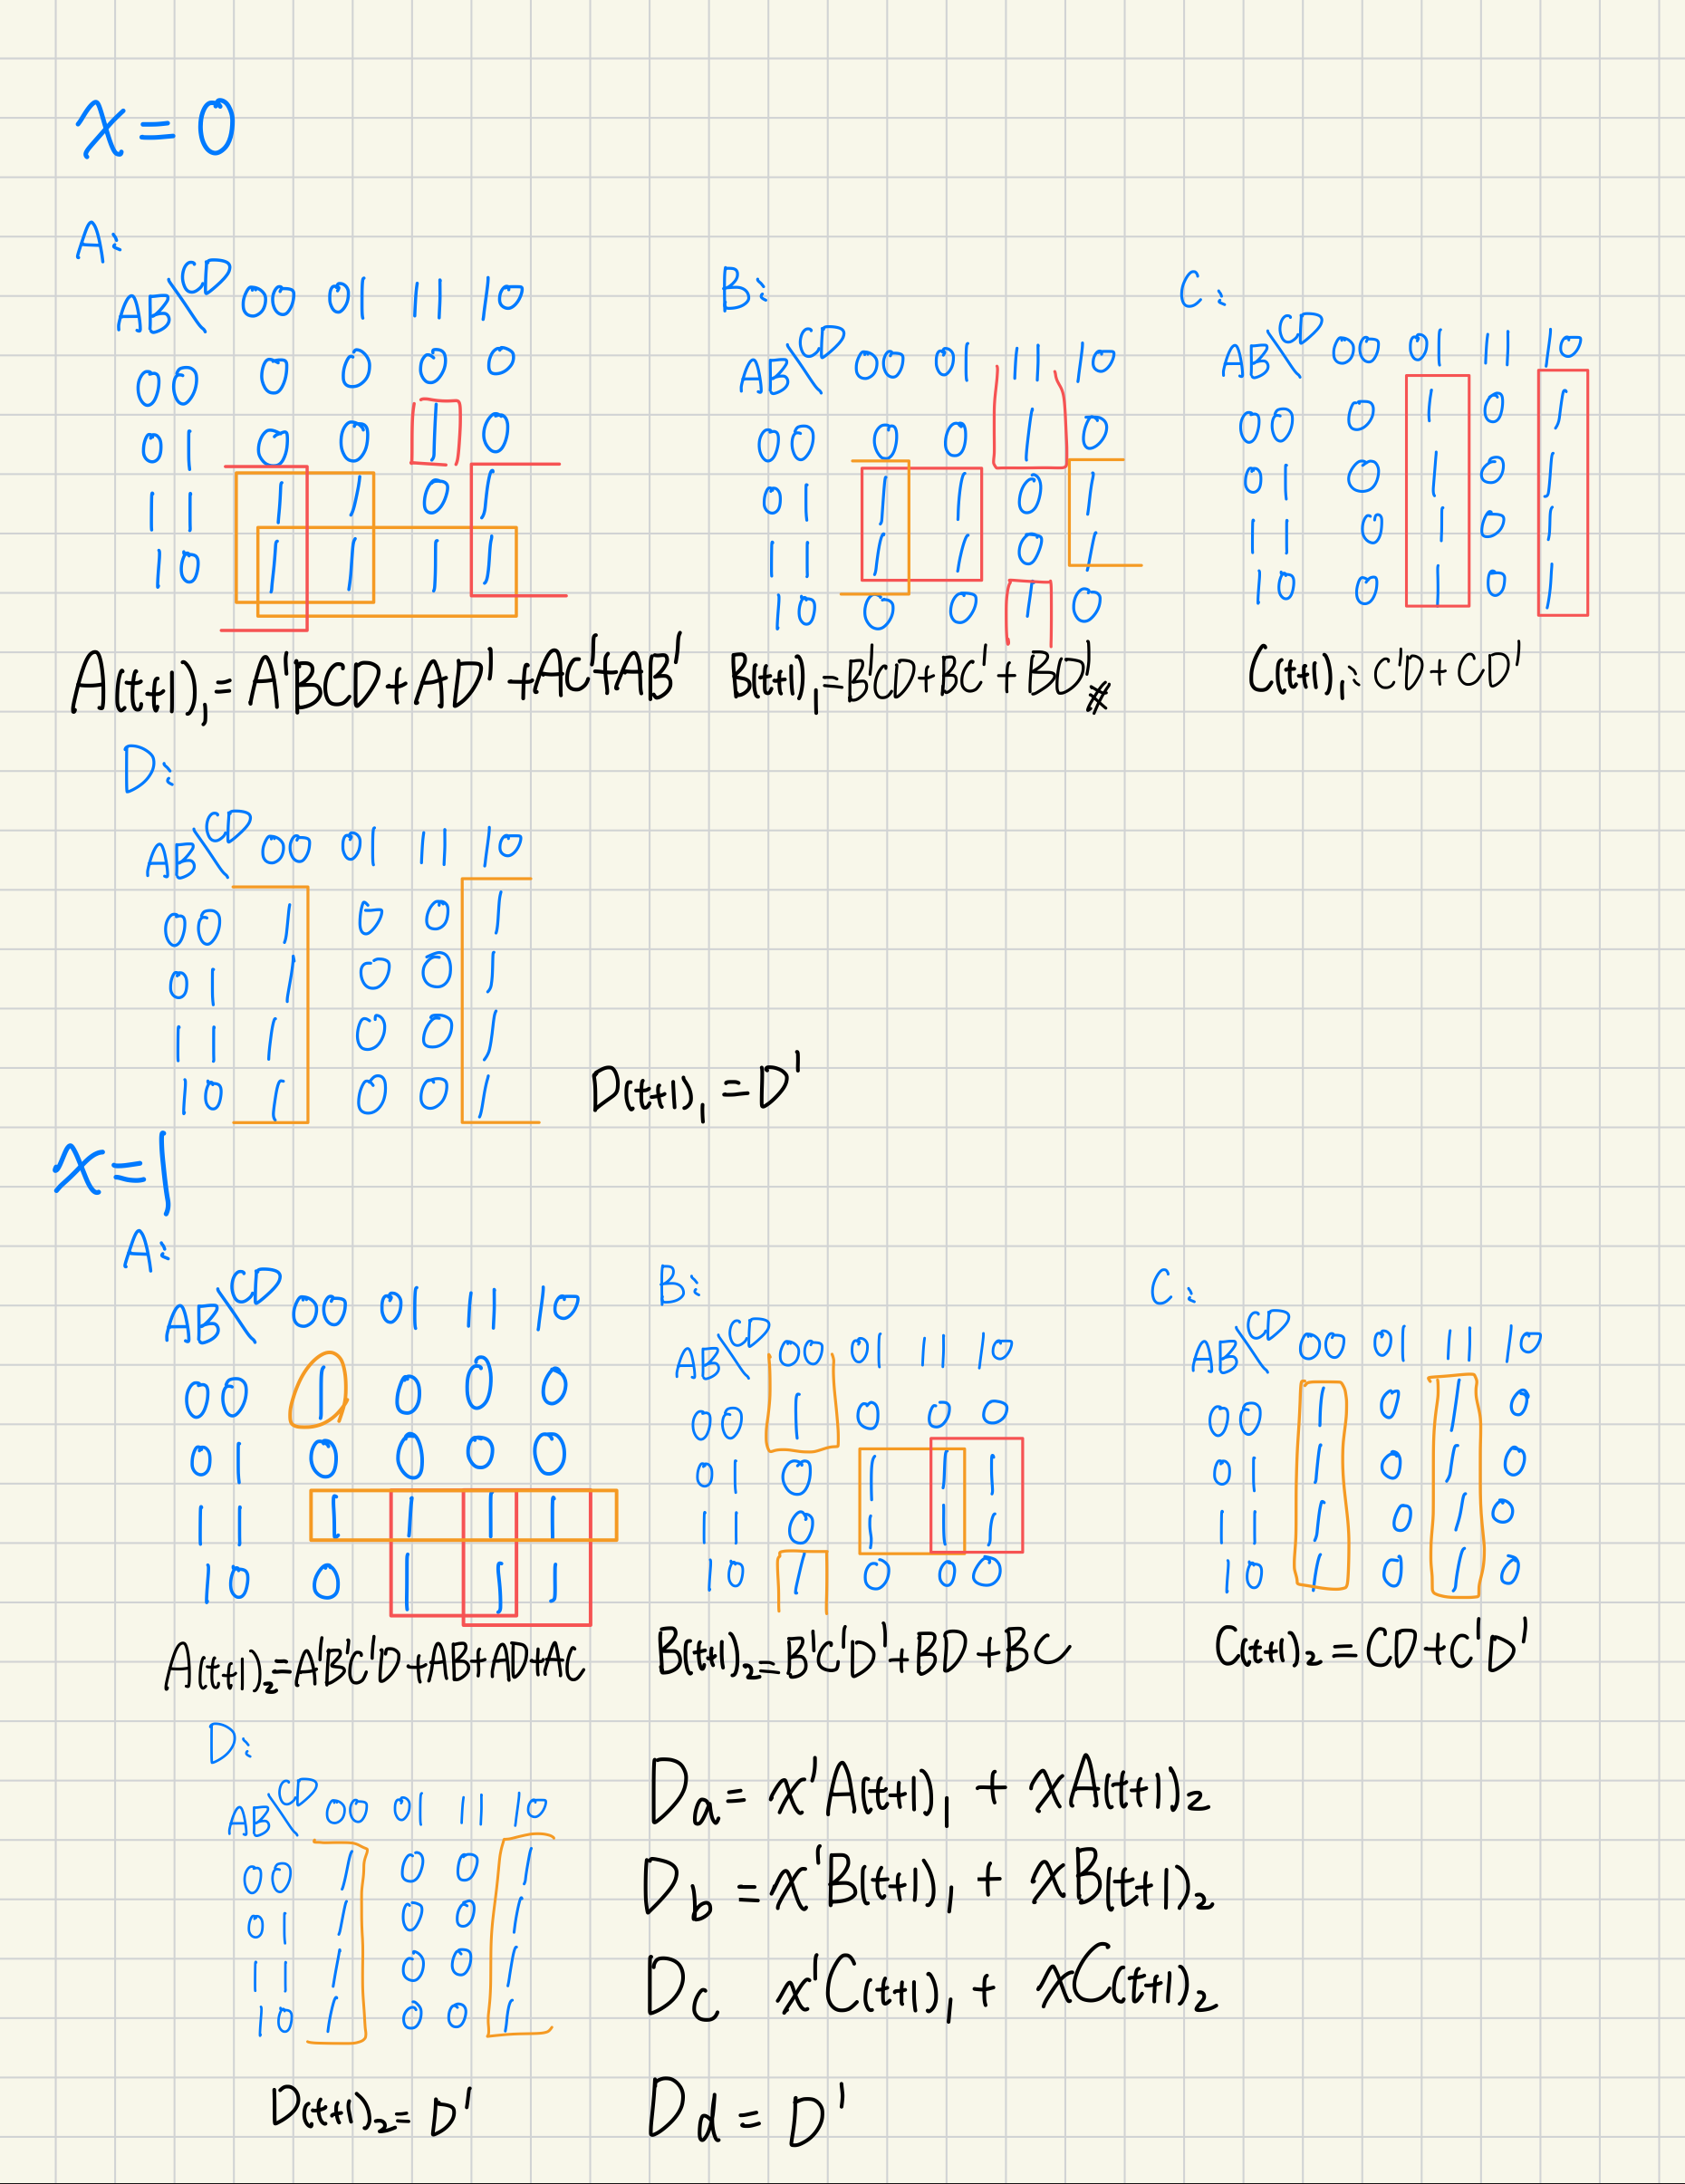 x=0
A:
AB\CD 00 01 11 10
00 0 0 0 0
01 0 0 1 0
11 1 1 0 1
10 1 1 1 1
A(t+1)₁=A'BCD+AD'+AC'+AB'
B:
AB\CD 00 01 11 10
00 0 0 1 0
01 1 1 0 1
11 1 1 0 1
10 0 0 1 0
B(t+1)₁=B'CD+BC'+BD'
C:
AB\CD 00 01 11 10
00 0 1 0 1
01 0 1 0 1
11 0 1 0 1
10 0 1 0 1
C(t+1)₁: C'D+CD'
D:
AB\CD 00 01 11 10
00 1 0 0 1
01 1 0 0 1
11 1 0 0 1
10 1 0 0 1
D(t+1)₁=D'
x=1
A:
AB\CD 00 01 11 10
00 1 0 0 0
01 0 0 0 0
11 1 1 1 1
10 0 1 1 1
A(t+1)₂=A'B'C'D+AB+AD+AC
B:
AB\CD 00 01 11 10
00 1 0 0 0
01 0 1 1 1
11 0 1 1 1
10 1 0 0 0
B(t+1)₂=B'C'D'+BD+BC
C:
AB\CD 00 01 11 10
00 1 0 1 0
01 1 0 1 0
11 1 0 1 0
10 1 0 1 0
C(t+1)₂=CD+C'D'
D:
AB\CD 00 01 11 10
00 1 0 0 1
01 1 0 0 1
11 1 0 0 1
10 1 0 0 1
D(t+1)₂=D'
Da=x'A(t+1)₁+xA(t+1)₂
Db=x'B(t+1)₁+xB(t+1)₂
Dc x'C(t+1)₁+xC(t+1)₂
Dd=D'